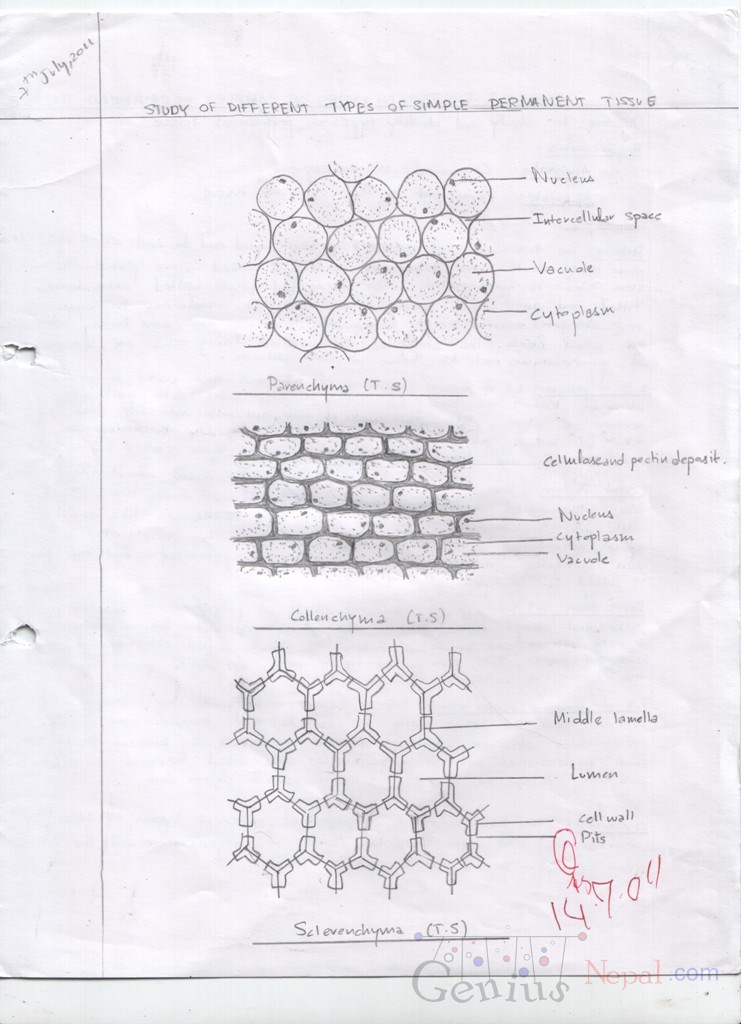 7th July, 2011
STUDY OF DIFFERENT TYPES OF SIMPLE PERMANENT TISSUE
Nucleus
Intercellular space
Vacuole
Cytoplasm
Parenchyma (T.S)
Cellulose and pectin deposit.
Nucleus
Cytoplasm
Vacuole
Collenchyma (T.S)
Middle lamella
Lumen
Cell wall
Pits
Sclerenchyma (T.S)
Genius Nepal.com